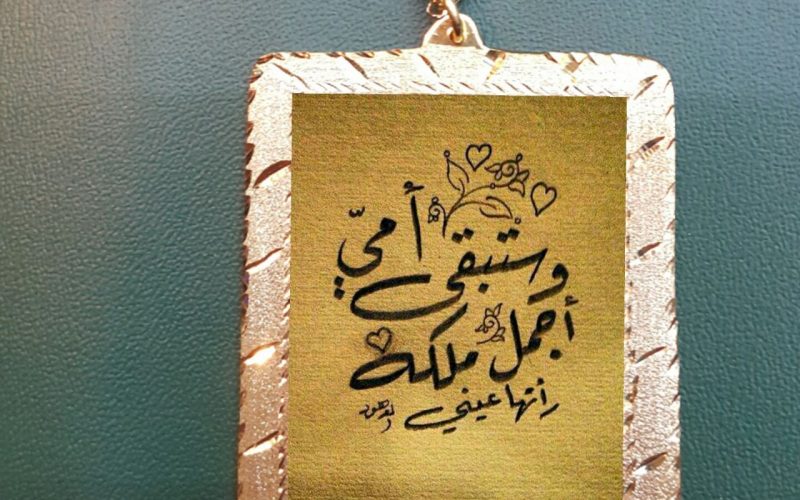 وستبقى أمي
أجمل ملكة
رأتها عيني